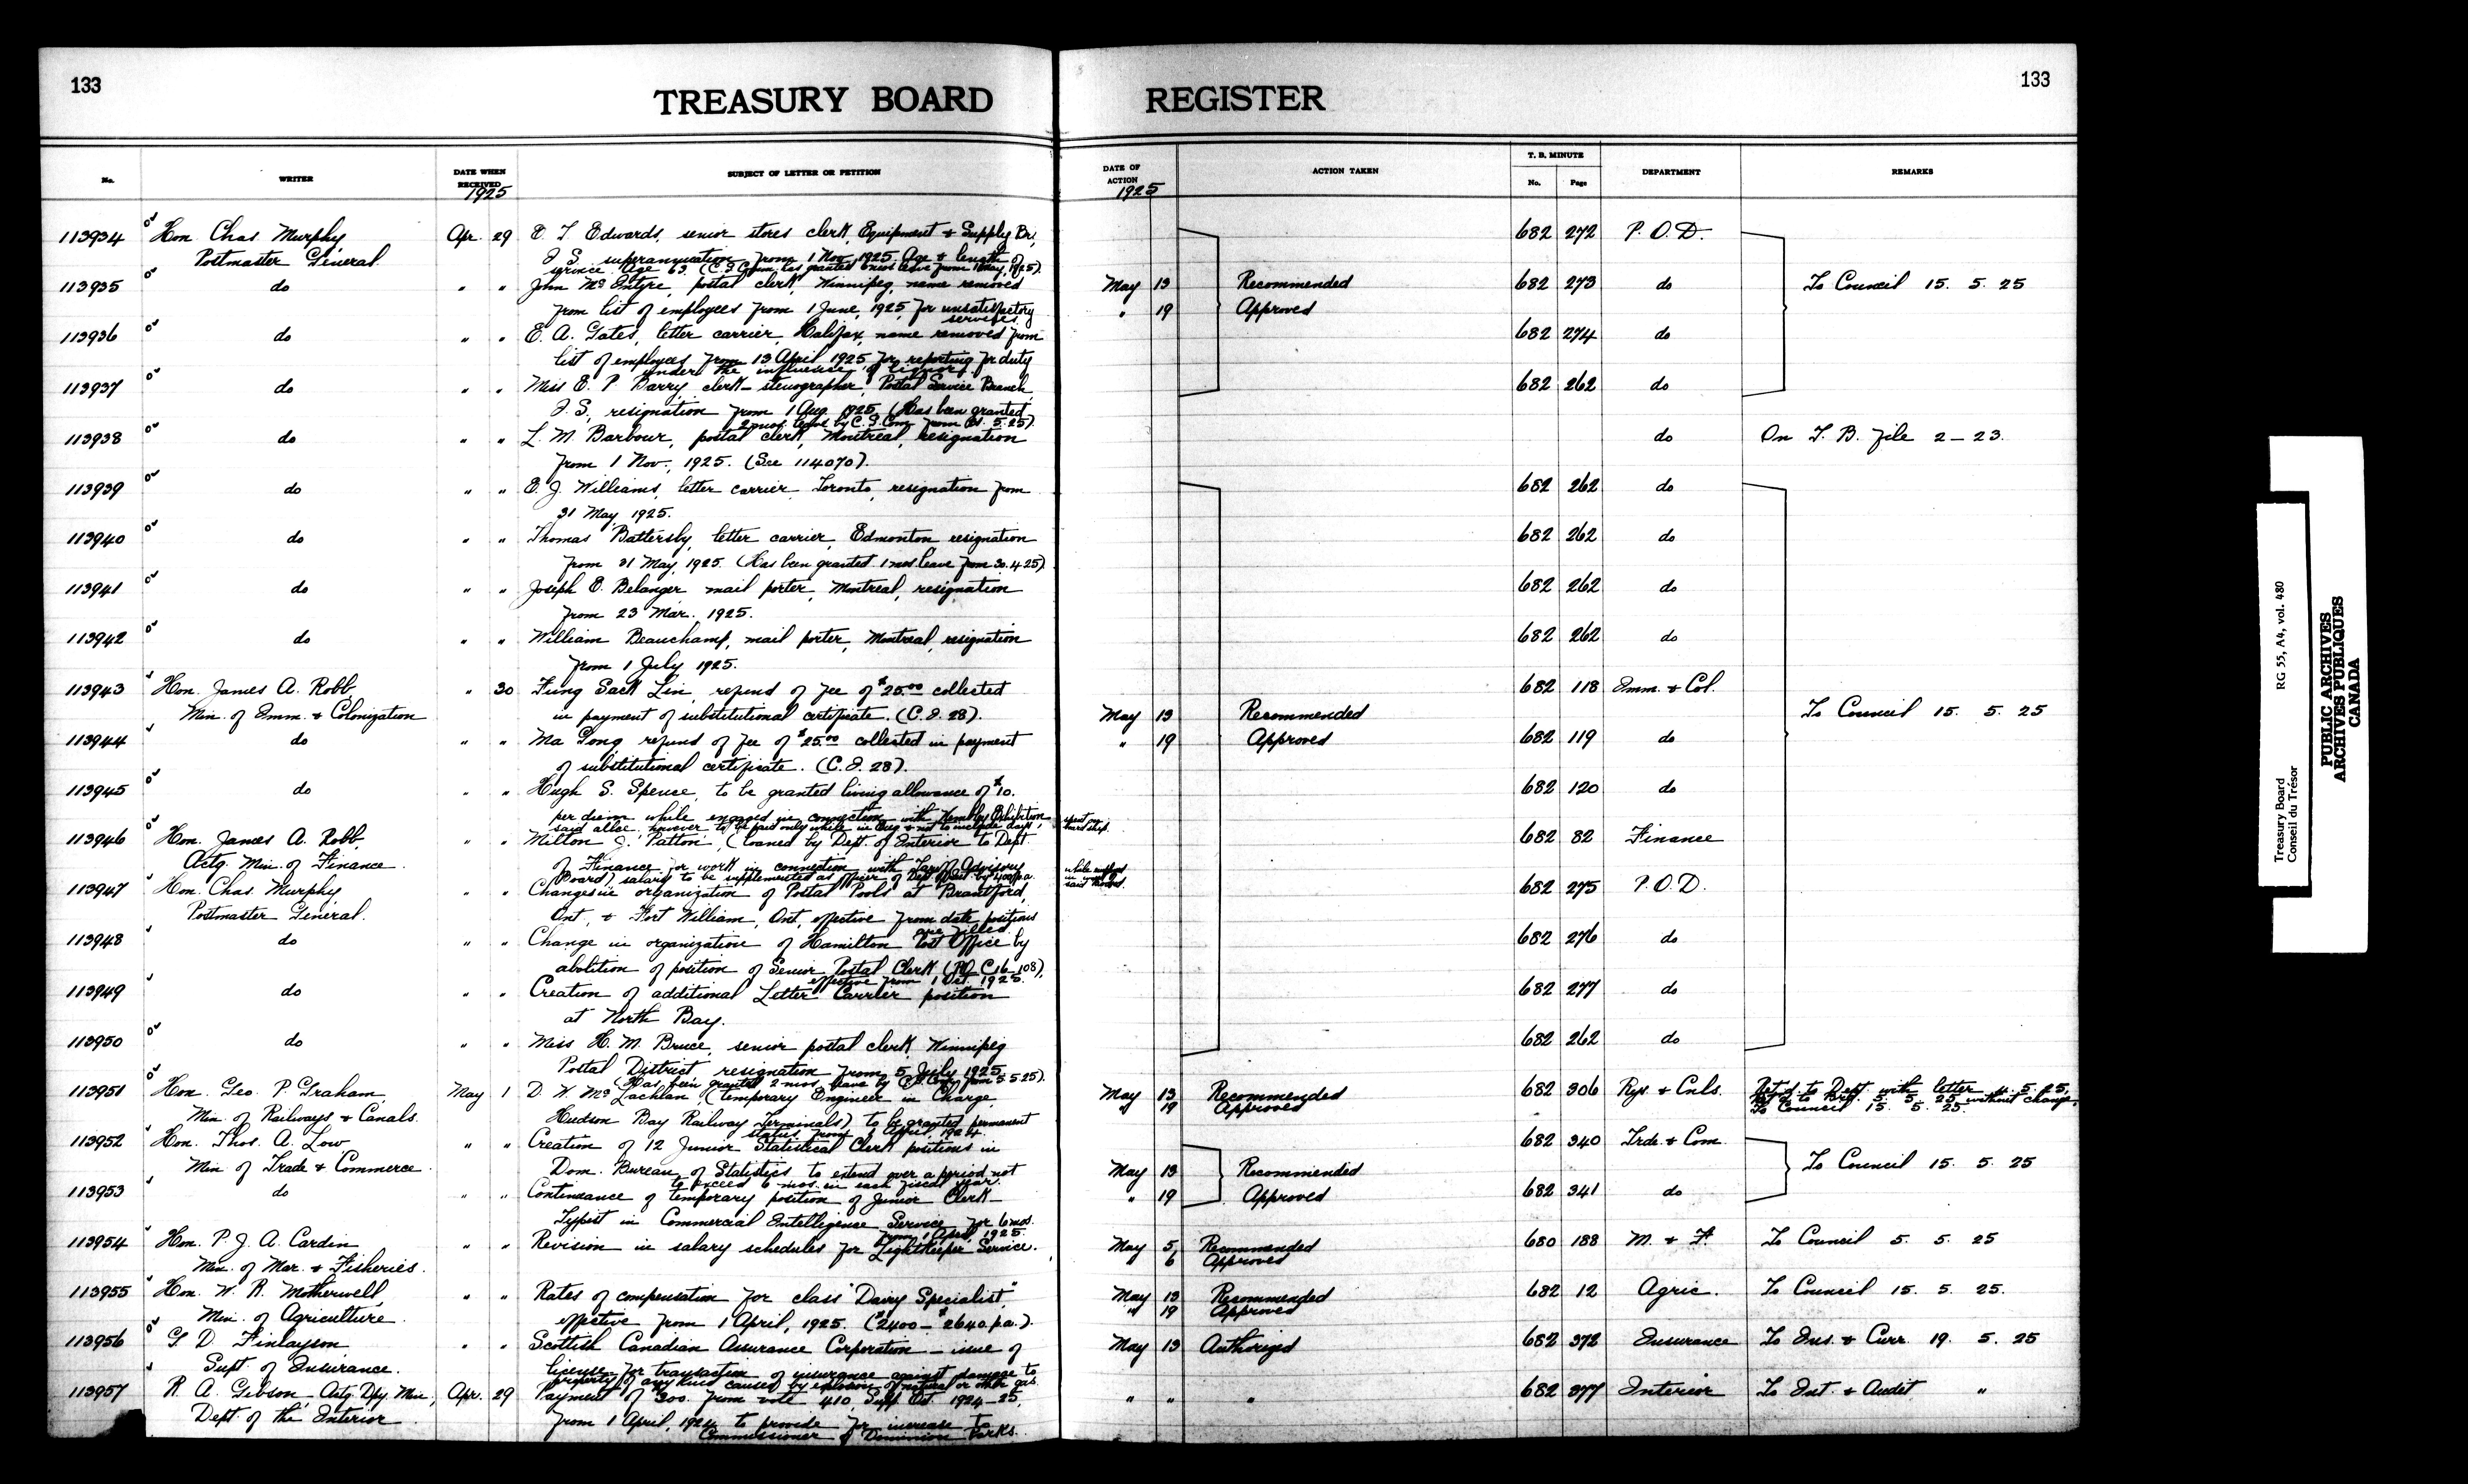 133
TREASURY BOARD REGISTER
133
No.
WRITER
DATE WHEN RECEIVED
1925
SUBJECT OF LETTER OR PETITION
DATE OF ACTION
1925
ACTION TAKEN
T. B. MINUTE
No. Page
DEPARTMENT
REMARKS
113934 Hon. Chas. Murphy, Apr. 29 E. T. Edwards, senior stores clerk, Equipment & Supply Br., 682 272 P. O. D.
Postmaster General I. S. superannuation from 1 Nov. 1925. Age & length of
service. Age 63. (C. S. Comm. has granted 6 mos leave from 1 May, 1925).
113935 do " " John McEntyre, postal clerk, Winnipeg, name removed May 13 Recommended 682 273 do To Council 15. 5. 25
from list of employees from 1 June, 1925, for unsatisfactory services. " 19 Approved
113936 do " " E. A. Gates, letter carrier, Halifax, name removed from 682 274 do
list of employees from 13 April 1925 for reporting for duty
under the influence of liquor.
113937 do " " Miss E. P. Barry, clerk-stenographer, Postal Service Branch, 682 262 do
I. S., resignation from 1 Aug. 1925. (Has been granted
2 mos. leave by C. S. Com. from 5. 25).
113938 do " " L. M. Barbour, postal clerk, Montreal, resignation do On T. B. file 2-23.
from 1 Nov., 1925. (See 114070).
113939 do " " E. J. Williams, letter carrier, Toronto, resignation from 682 262 do
31 May, 1925.
113940 do " " Thomas Battersby, letter carrier, Edmonton resignation 682 262 do
from 31 May, 1925. (Has been granted 1 mos leave from 30. 4 25).
113941 do " " Joseph E. Belanger mail porter, Montreal, resignation 682 262 do
from 23 Mar. 1925.
113942 do " " William Beauchamp, mail porter, Montreal, resignation 682 262 do
from 1 July 1925.
113943 Hon. James A. Robb, " 30 Fung Sack Lin, refund of fee of $25.00 collected 682 118 Imm. & Col.
Min. of Imm. & Colonization in payment of substitutional certificate. (C. I. 28). May 13 Recommended To Council 15. 5. 25
113944 do " " Ma Gong, refund of fee of $25.00 collected in payment " 19 Approved 682 119 do
of substitutional certificate. (C. I. 28).
113945 do " " Hugh S. Spence, to be granted living allowance of $10. 682 120 do
per diem while engaged in connection with Wembley Exhibition,
said allce. however to be paid only while in Eng. & not to include days spent on board ship.
113946 Hon. James A. Robb, " " Milton J. Patton, (loaned by Dept. of Interior to Dept. 682 82 Finance
Actg. Min. of Finance of Finance for work in connection with Tariff Advisory
Board) salary to be supplemented as officer of Dept. of Int. by while
in work of said Board.
113947 Hon. Chas. Murphy " " Changes in organization of Postal Pools at Brantford, 682 275 P. O. D.
Postmaster General. Ont., & Fort William, Ont., effective from date positions
are filled.
113948 do " " Change in organization of Hamilton Post Office by 682 276 do
abolition of position of Senior Postal Clerk (PO C16-108),
effective from 1 Oct. 1925.
113949 do " " Creation of additional Letter Carrier position 682 277 do
at North Bay.
113950 do " " Miss H. M. Bruce, senior postal clerk, Winnipeg 682 262 do
Postal District resignation from 5 July 1925.
(Has been granted 2 mos. leave by C. S. Com. from 5.5.25).
113951 Hon. Geo. P. Graham, May 1 D. W. McLachlan, (temporary Engineer in Charge, May 13 Recommended 682 306 Rys. & Cnls. Ret'd to Dept. with letter 4. 5. 25.
Min. of Railways & Canals. Hudson Bay Railway Terminals) to be granted permanent " 19 Approved 5. 5. 25 without change.
status from 1 April, 1924. To Council 15. 5. 25.
113952 Hon. Thos. A. Low " " Creation of 12 Junior Statistical Clerk positions in 682 340 Trde. & Com.
Min of Trade & Commerce. Dom. Bureau of Statistics to extend over a period not May 13 Recommended To Council 15. 5. 25
to exceed 6 mos. in each fiscal year.
113953 do " " Continuance of temporary position of Junior Clerk- " 19 Approved 682 341 do
Typist in Commercial Intelligence Service for 6 mos.
from 1 April, 1925.
113954 Hon. P. J. A. Cardin " " Revision in salary schedules for Lightkeeper Service. May 5 Recommended 680 188 M. & F. To Council 5. 5. 25
Min. of Mar. & Fisheries. " 6 Approved
113955 Hon. W. R. Motherwell, " " Rates of compensation for class "Dairy Specialist," May 13 Recommended 682 12 Agric. To Council 15. 5. 25.
Min. of Agriculture. effective from 1 April, 1925. ($2400-$2640 p.a.). " 19 Approved
113956 G. D. Finlayson, " " Scottish Canadian Assurance Corporation - issue of May 13 Authorized 682 372 Insurance To Ins. & Curr. 19. 5. 25
Supt. of Insurance. license for transaction of insurance against damage to
property of any kind caused by explosion of natural or other gas.
113957 R. A. Gibson, Actg. Dpy. Min., Apr. 29 Payment of $300. from vote 410, Supp. Est. 1924-25, " " " 682 377 Interior To Int. & Audit "
Dept. of the Interior from 1 April, 1924 to provide for increase to
Commissioner of Dominion Parks.
Treasury Board RG 55, A4, vol. 480
Conseil du Trésor
PUBLIC ARCHIVES
ARCHIVES PUBLIQUES
CANADA